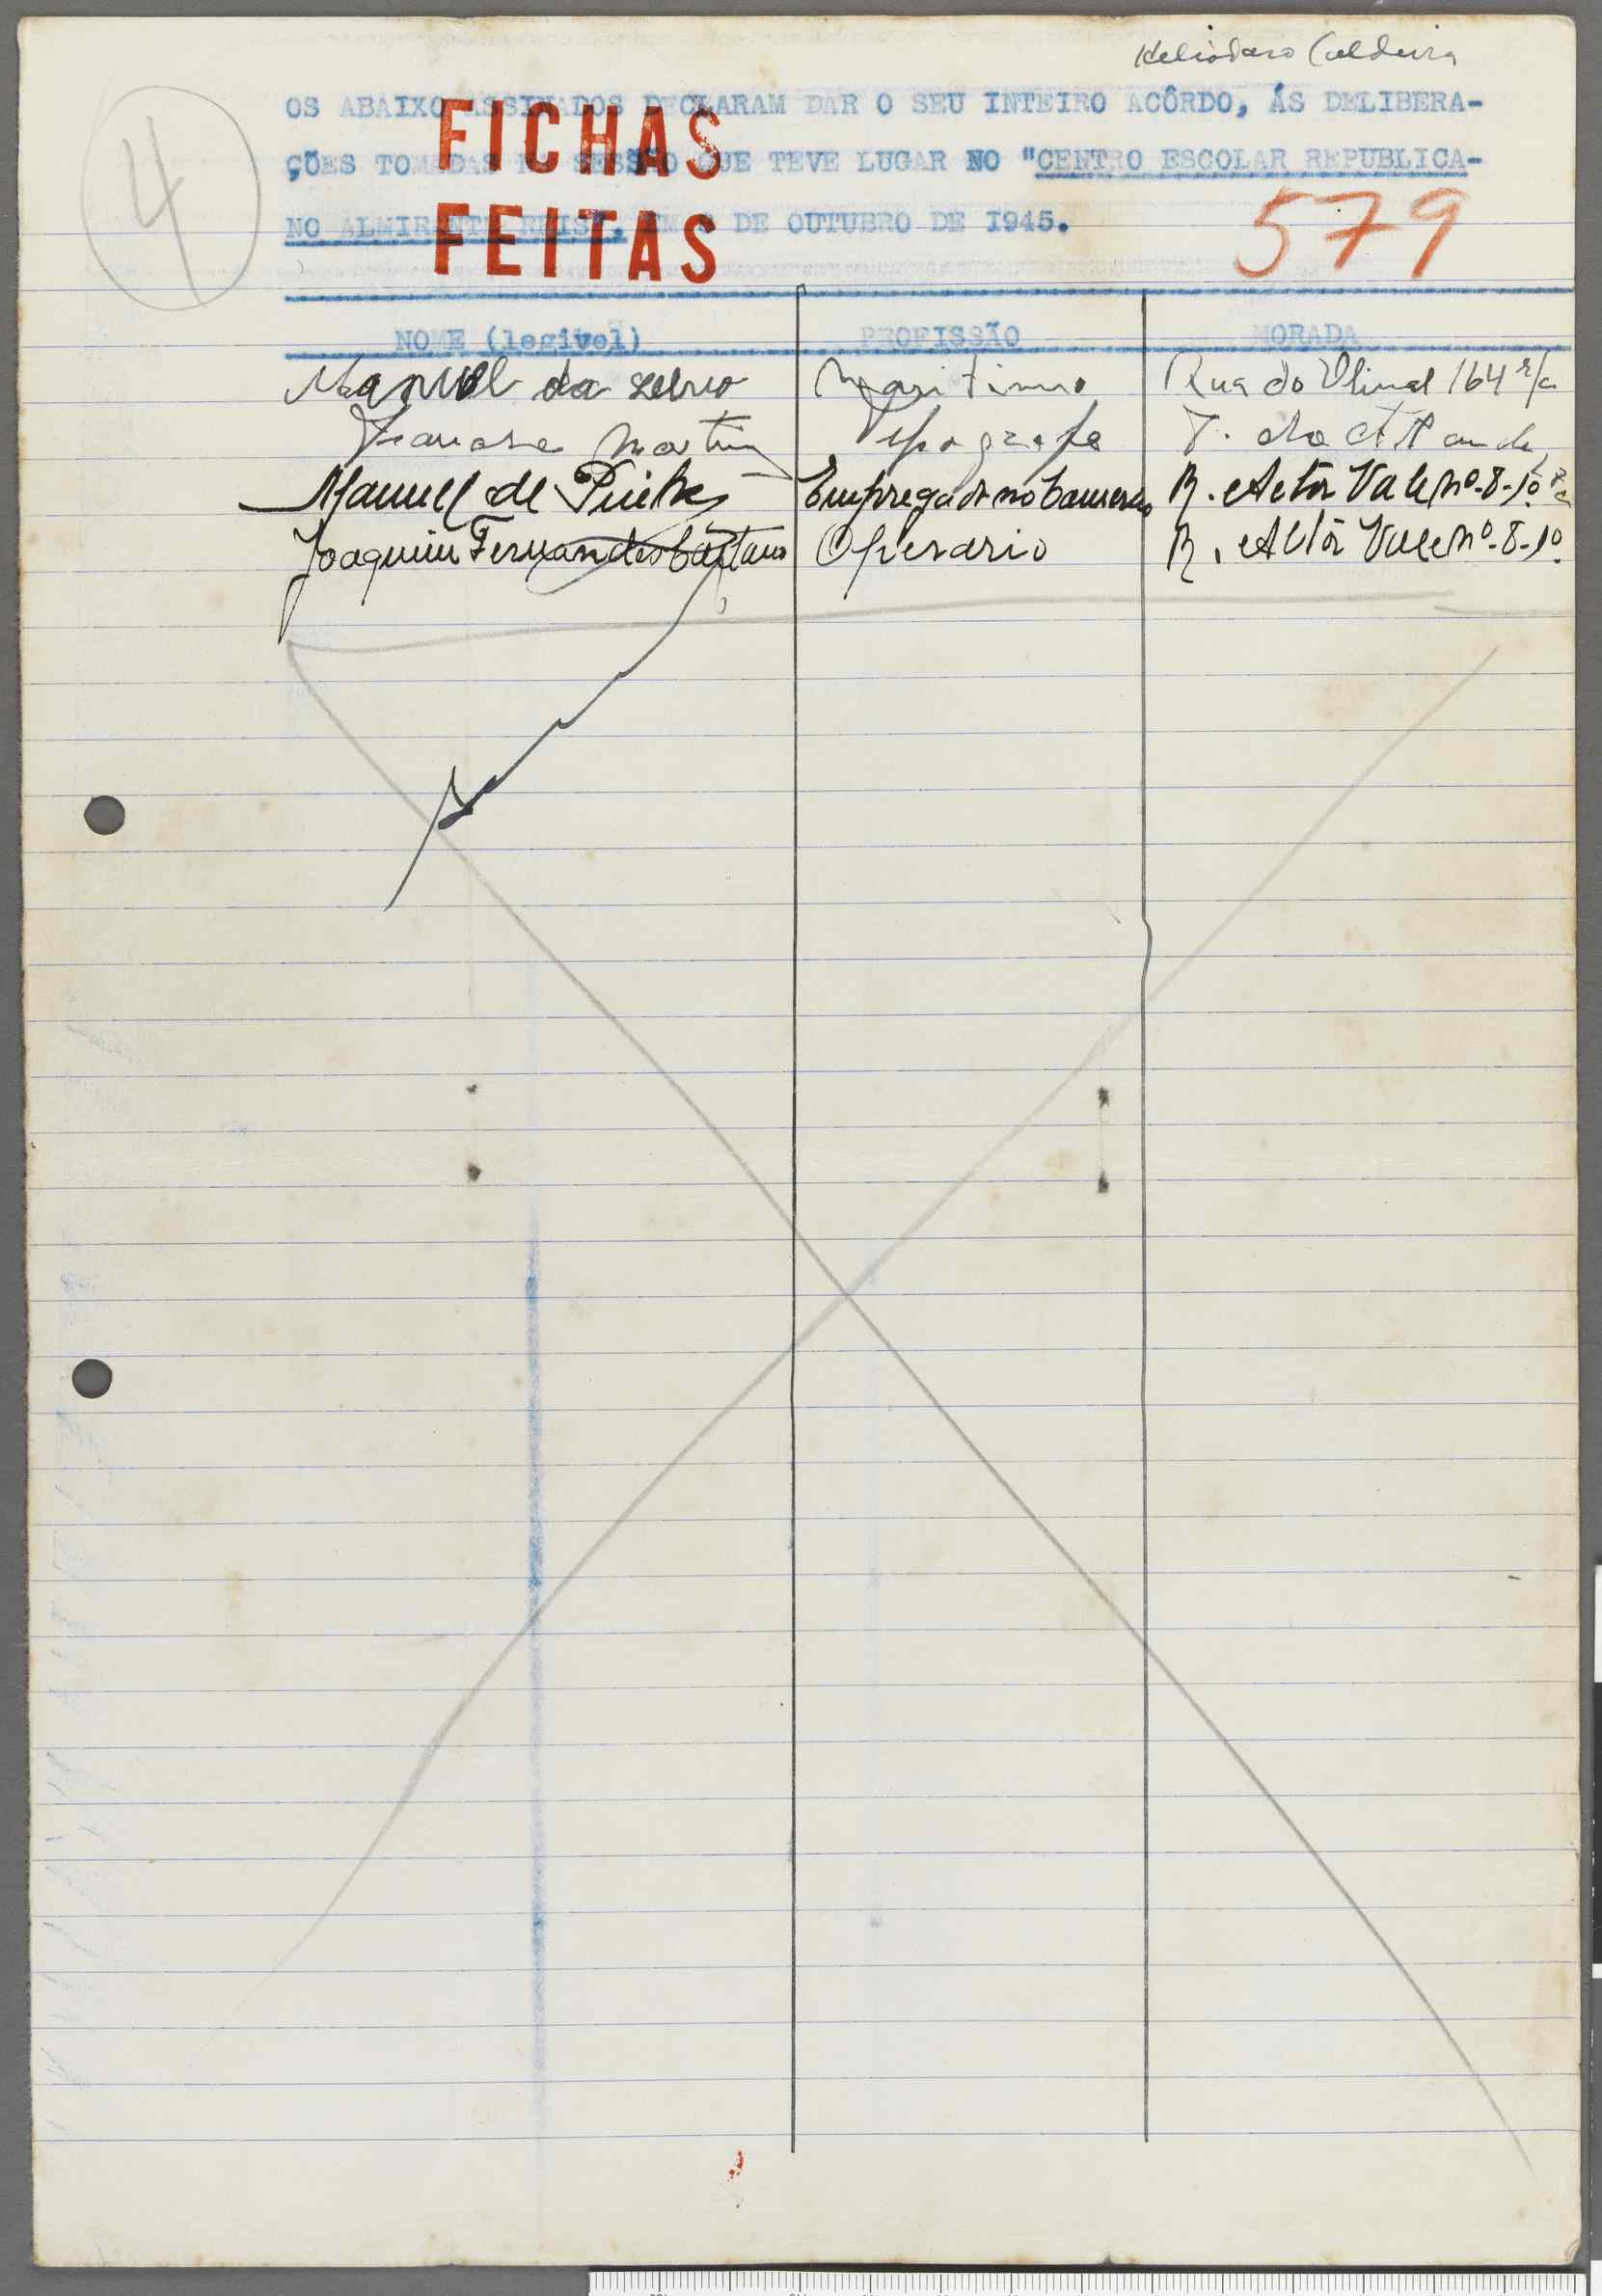 Heliodoro Caldeira
4
OS ABAIXO ASSINADOS DECLARAM DAR O SEU INTEIRO ACÔRDO, ÁS DELIBERA-
ÇÕES TOMADAS NA SESSÃO QUE TEVE LUGAR NO "CENTRO ESCOLAR REPUBLICA-
NO ALMIRANTE REIS", EM DE OUTUBRO DE 1945.
FICHAS
FEITAS
579
NOME (legivel) PROFISSÃO MORADA
Manuel da Maritimo Rua do 164 r/c
Martins Tipografo T. da
Manuel de Empregado no Comercio R. Actor Vale nº-8-1º
Joaquim Fernandes Caetano Operario R. Actor Vale nº-8-1º